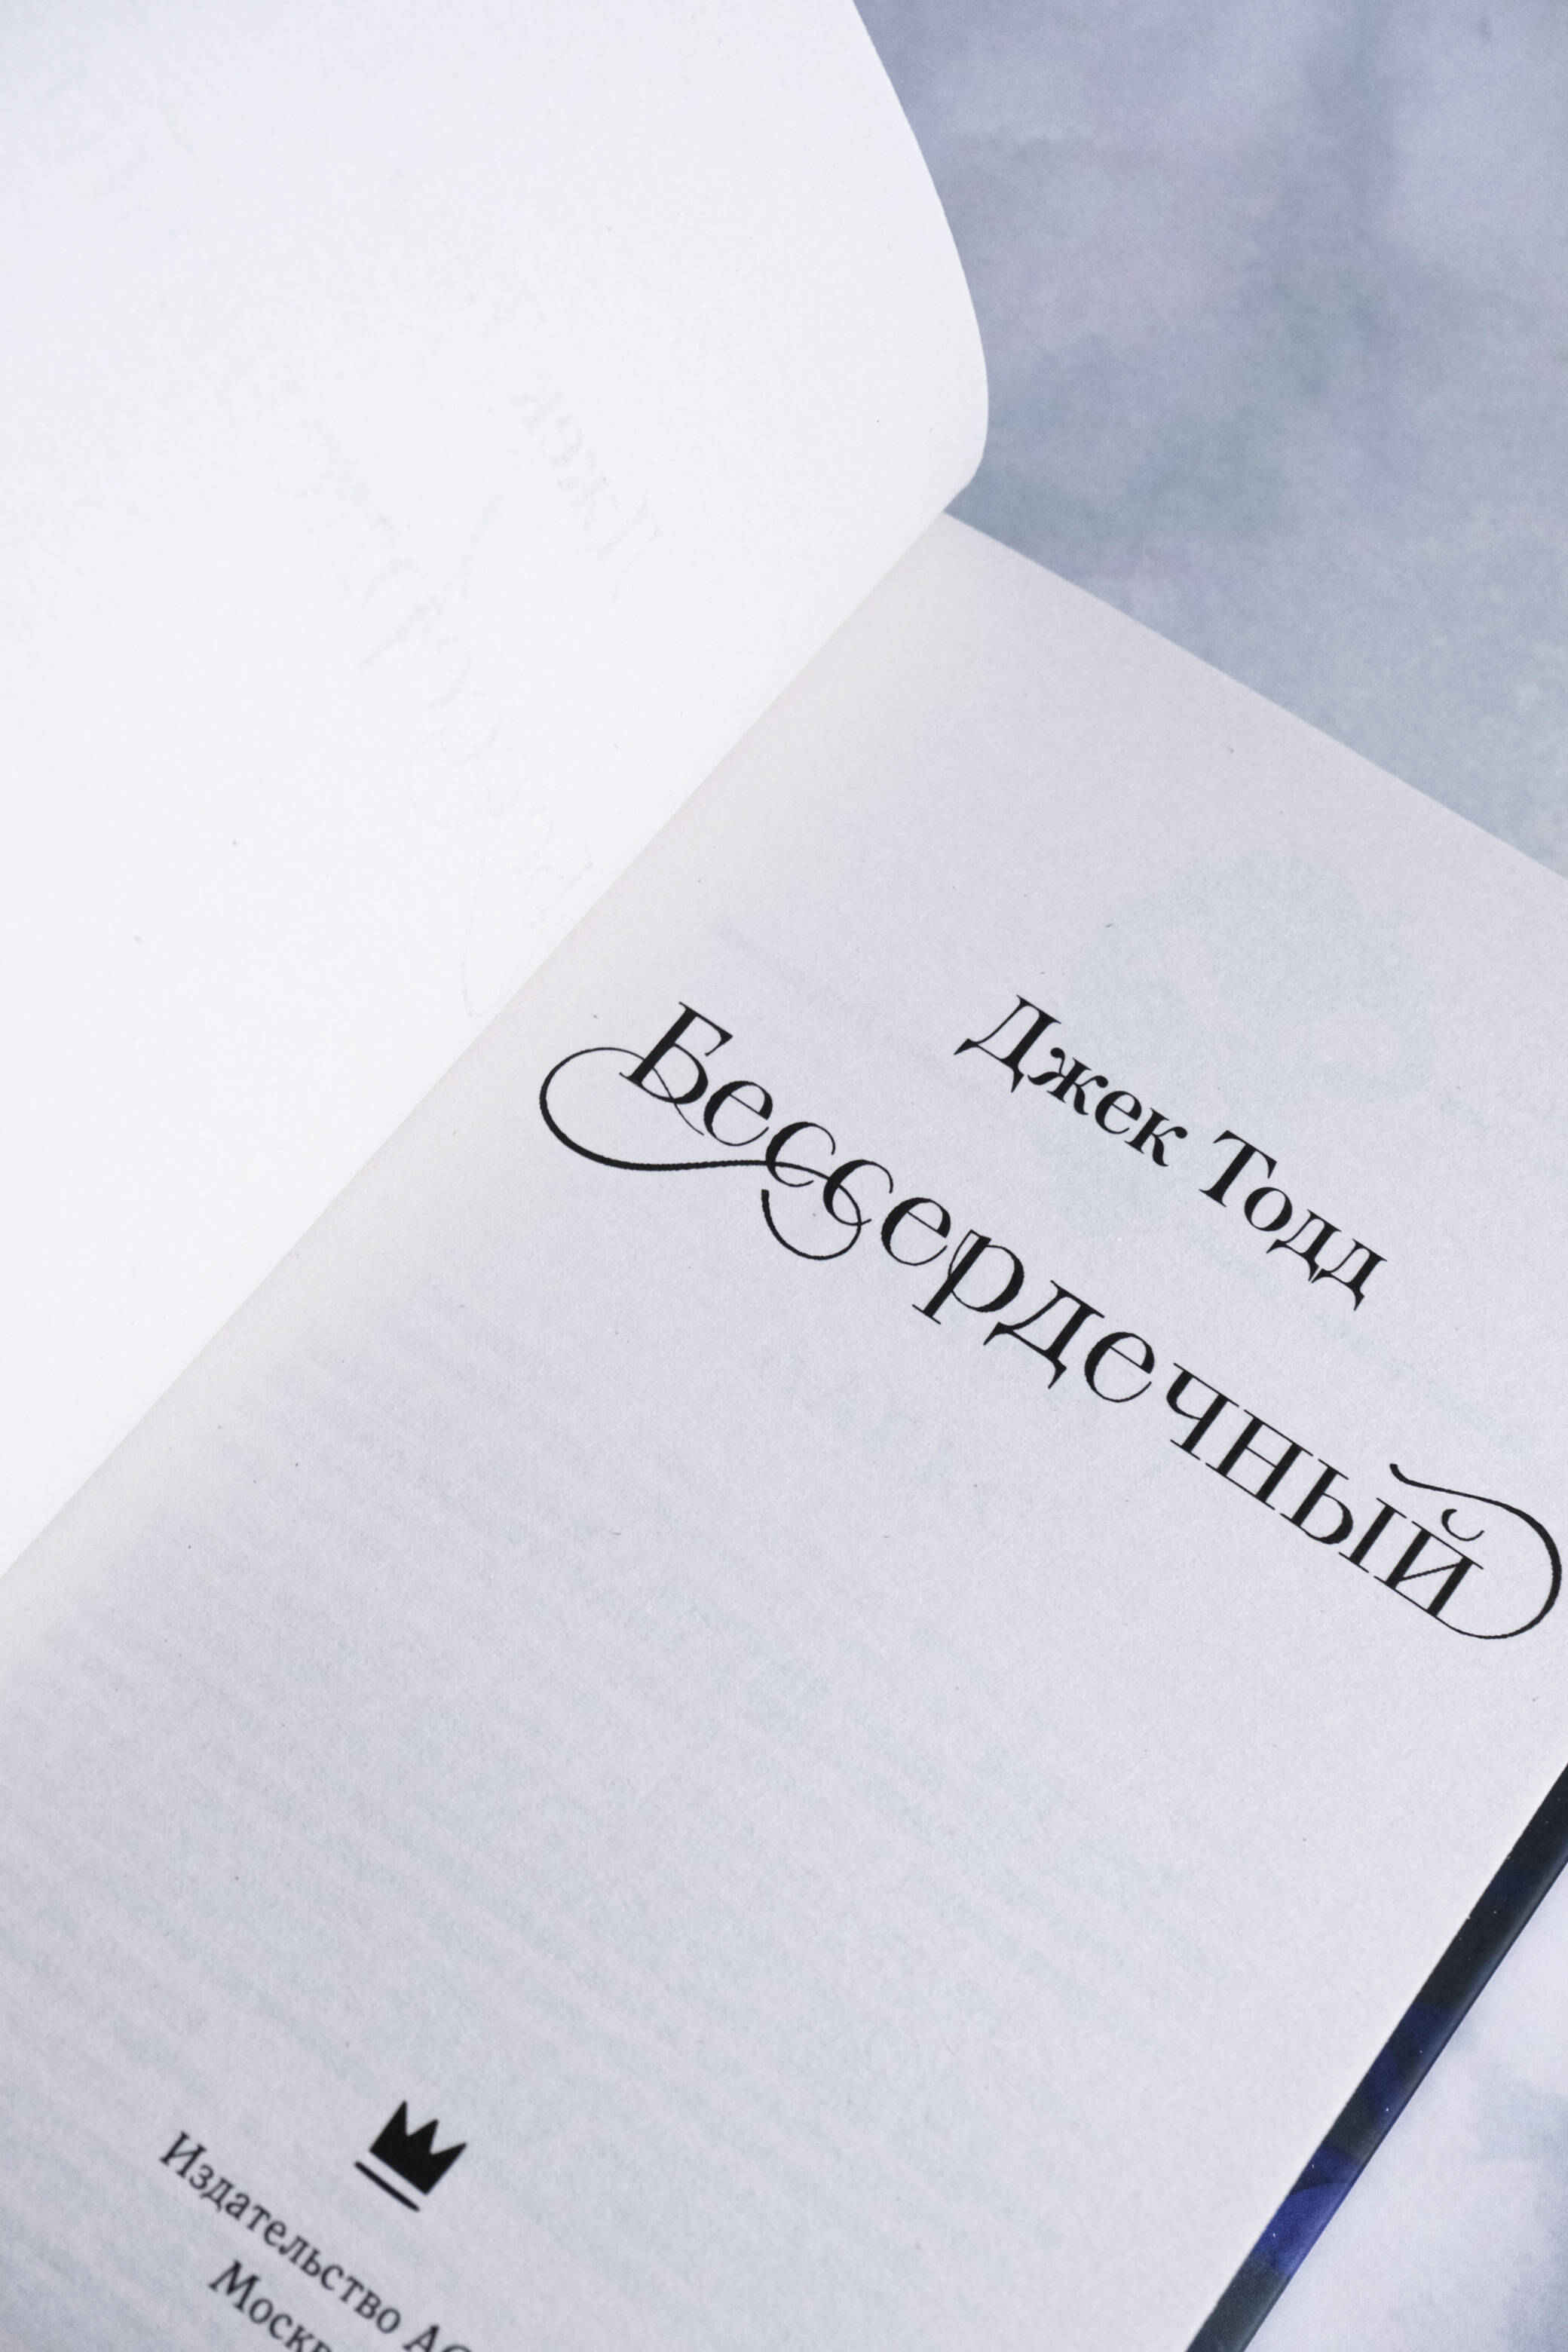 Джек Тодд
Бессердечный
Издательство